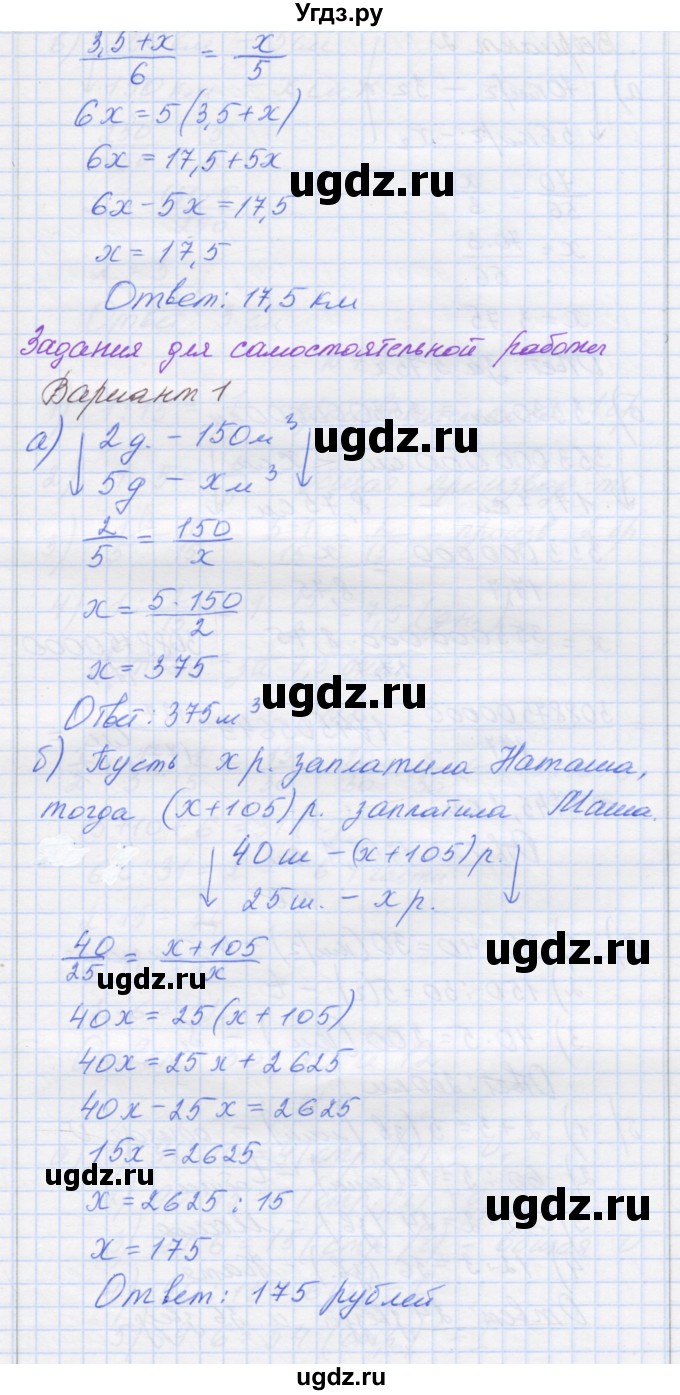 Угдз.ру
(3,5+x)/6 = x/5
6x = 5(3,5+x)
6x = 17,5+5x
ugdz.ru
6x-5x=17,5
x = 17,5
Ответ: 17,5 км
Задания для самостоятельной работы
Вариант 1
а) ↓ 2д. - 150м³ ↓
ugdz.ru
5д - xм³
2/5 = 150/x
x = (5·150)/2
x = 375
ugdz.ru
Ответ: 375м³
б) Пусть x р. заплатила Наташа,
тогда (x+105)р. заплатила Маша.
↓ 40ш - (x+105)р. ↓
25ш. - x р.
40/25 = (x+105)/x
ugdz.ru
ugdz.ru
40x = 25(x+105)
40x = 25x+2625
40x-25x = 2625
15x = 2625
ugdz.ru
x = 2625:15
ugdz.ru
x = 175
Ответ: 175 рублей
ugdz.ru